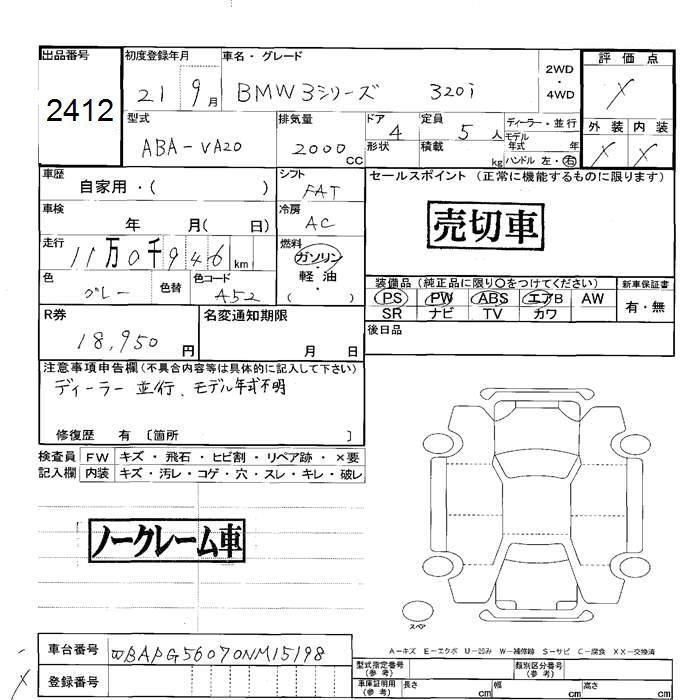 出品番号 初度登録年月 車名・グレード 2WD・4WD 評価点
2412 21 9月 BMW3シリーズ 320i ×
型式 排気量 ドア 4 定員 5 人 ディーラー・並行 外装 内装
ABA-VA20 2000 CC 形状 積載 kg モデル年式 年 ハンドル 左・右 × ×
車歴 自家用・( ) シフト FAT セールスポイント (正常に機能するものに限ります)
車検 年 月( 日) 冷房 AC 売切車
走行 11万0千946km 燃料 ガソリン・軽油 ( )
色 グレー 色替 色コード A52 装備品(純正品に限り○をつけてください) 新車保証書
PS PW ABS エアB AW 有・無
SR ナビ TV カワ
R券 18,950円 名変通知期限 月 日 後日品
注意事項申告欄(不具合内容等は具体的に記入して下さい)
ディーラー並行、モデル年式不明
修復歴 有 〔箇所 〕
検査員 FW キズ・飛石・ヒビ割・リペア跡・×要
記入欄 内装 キズ・汚レ・コゲ・穴・スレ・キレ・破レ
ノークレーム車
スペア
A-キズ E-エクボ U-凹み W-補修跡 S-サビ C-腐食 XX-交換済
車台番号 WBAPG56070NM15198 型式指定番号(参考) 類別区分番号(参考)
登録番号 車庫証明用(参考) 長さ cm 幅 cm 高さ cm